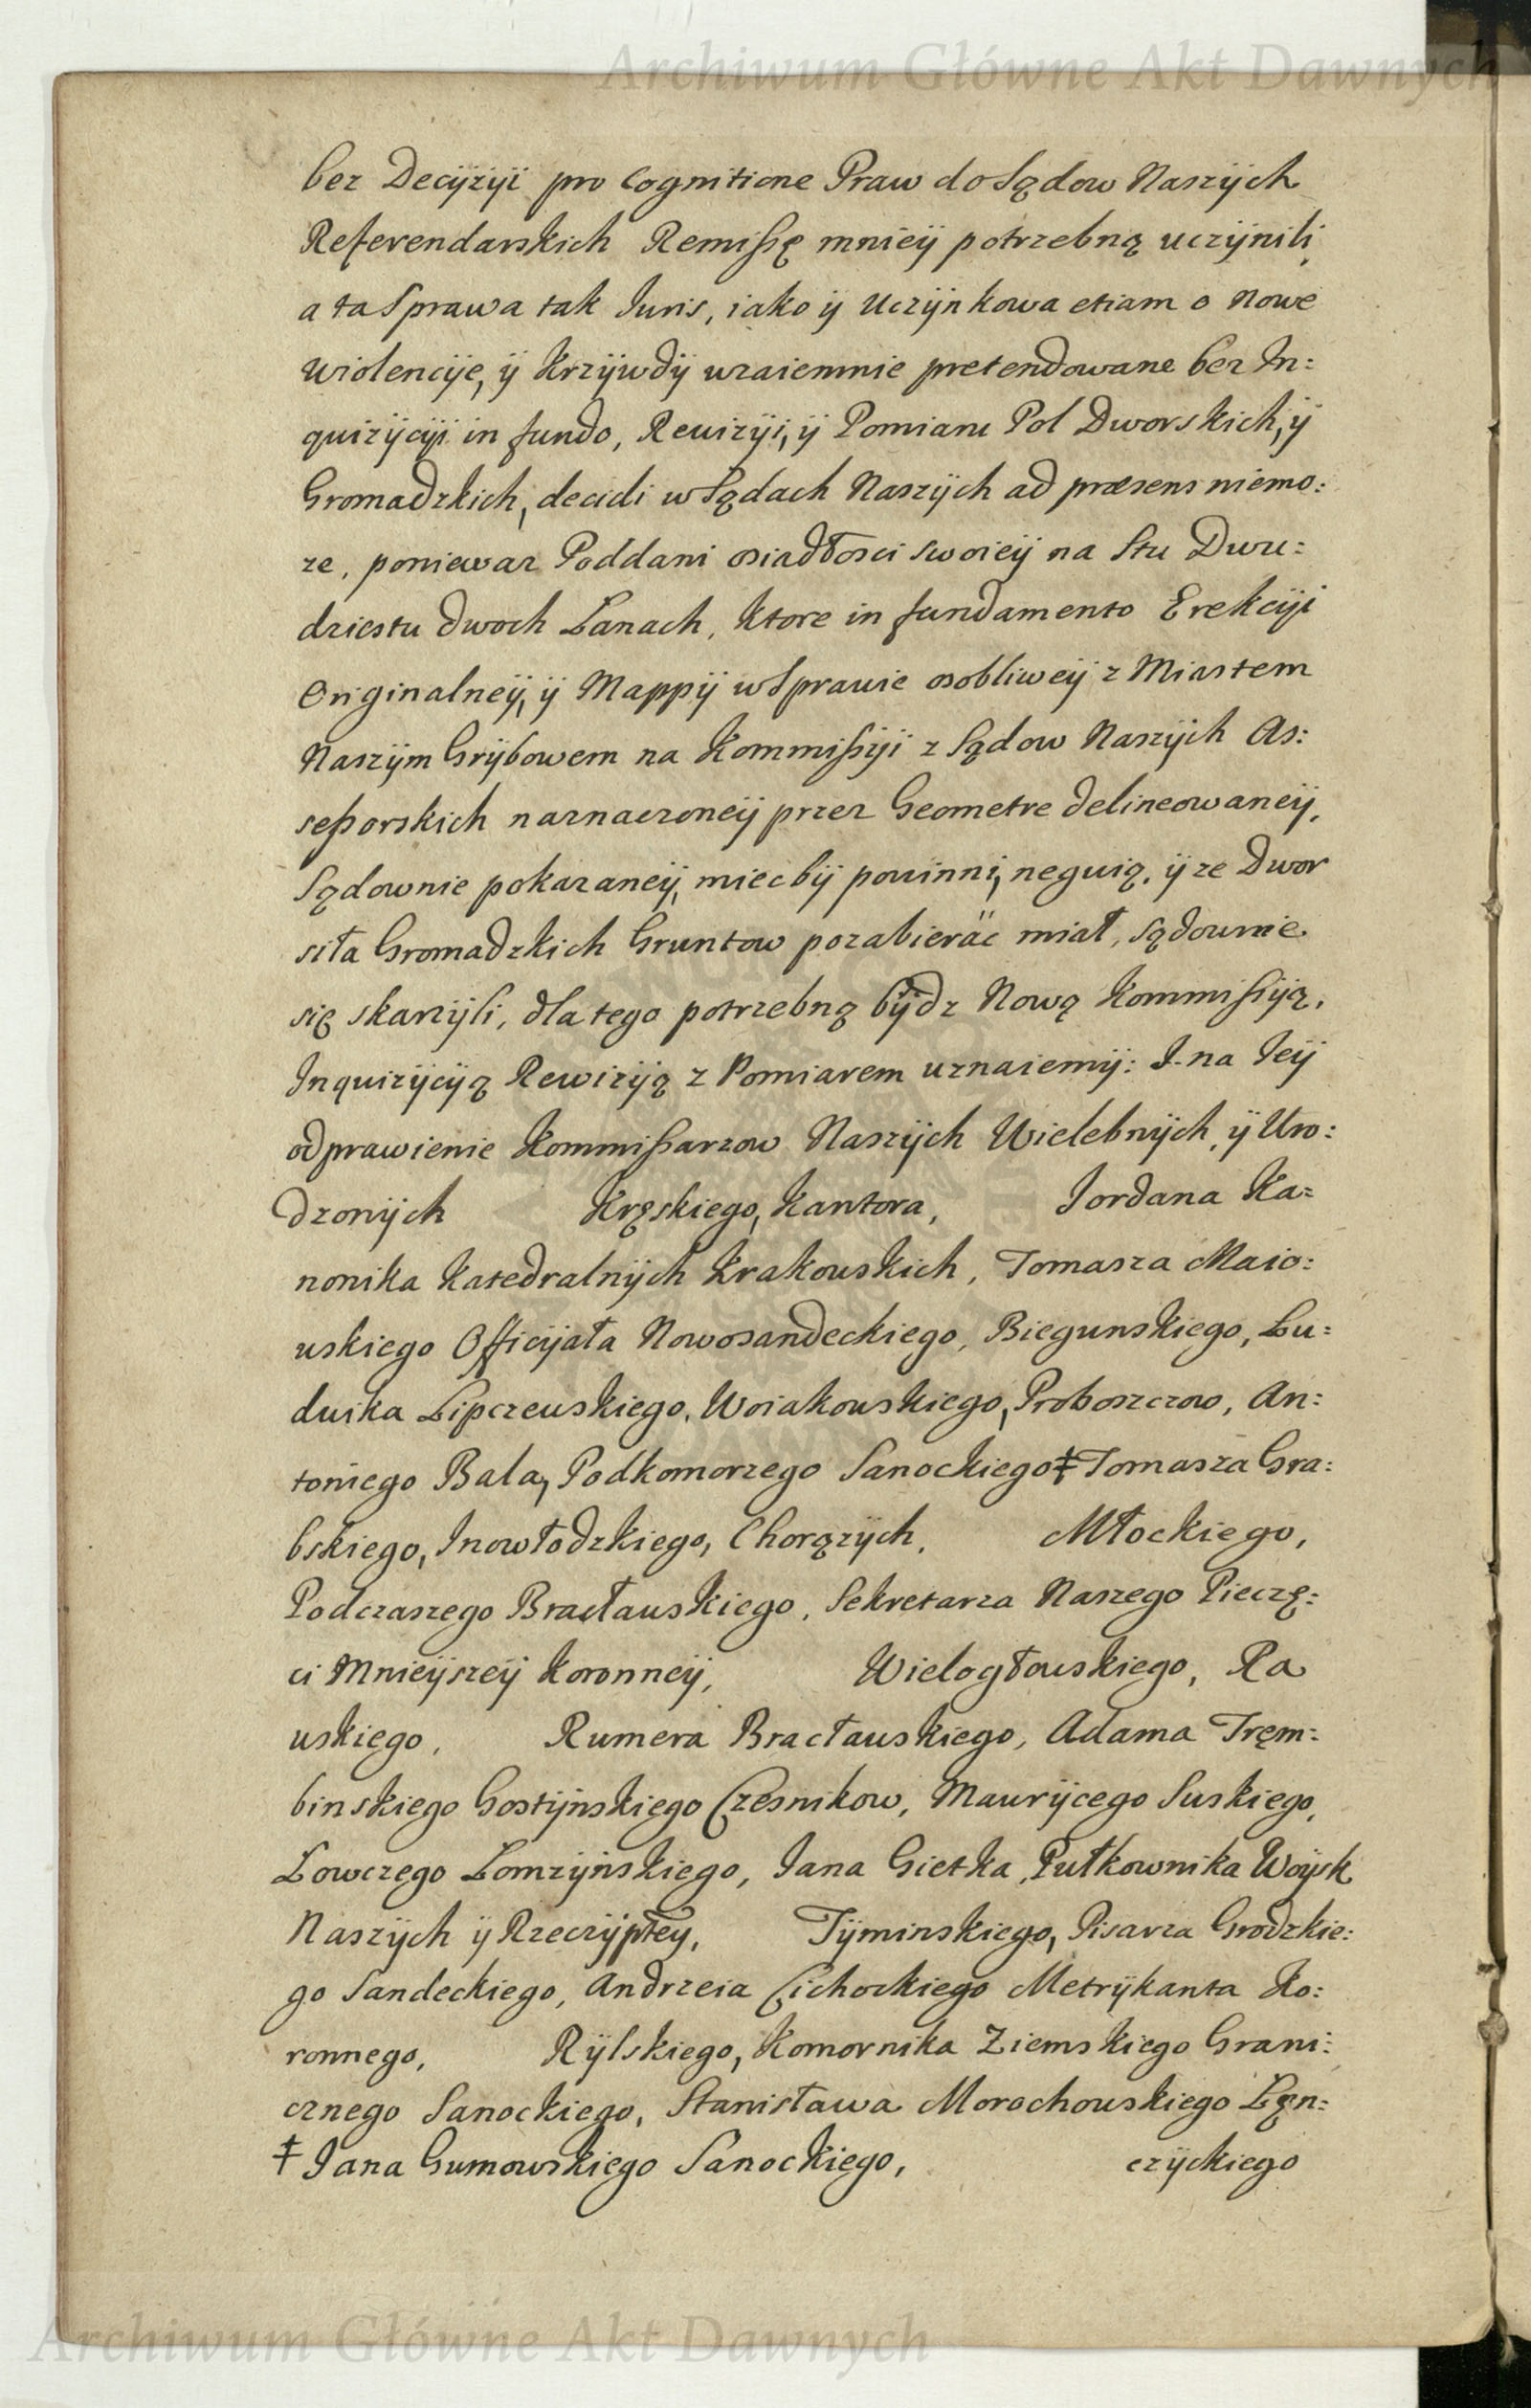 Archiwum Główne Akt Dawnych
bez Decÿzÿi pro Cognitione Praw do Sądow Naszÿch
Referendarskich Remißę mnieÿ potrzebną uczÿnili,
a ta Sprawa tak Iuris, iako ÿ Uczÿnkowa etiam o Nowe
wiolencÿe, ÿ Krzÿwdÿ wzaiemnie pretendowane bez In:
quizÿcÿi in fundo, Rewizÿi, ÿ Pomiaru Pol Dworskich, ÿ
Gromadzkich, decidi w Sądach Naszÿch ad præsens niemo:
ze, poniewaz Poddani osiadłosci swoieÿ na Stu Dwu:
dziestu dwoch Łanach, ktore in fundamento Erekcÿi
Originalneÿ, ÿ Mappÿ w Sprawie osobliweÿ z Miastem
Naszÿm Grÿbowem na Kommißÿi z Sądow Naszÿch As:
seßorskich naznaczoneÿ przez Geometre delineowaneÿ,
Sądownie pokazaneÿ, miec bÿ powinni, neguią, ÿ ze Dwor
siła Gromadzkich Gruntow pozabierac miał, sądownie
się skarzÿli, dla tego potrzebną bÿdz Nową Kommißÿą,
Inquizÿcÿą Rewizÿą z Pomiarem uznaiemÿ: I na Ieÿ
odprawienie Kommißarzow Naszÿch Wielebnÿch, ÿ Uro:
dzonÿch Kręskiego, Kantora, Iordana Ka:
nonika Katedralnÿch Krakowskich, Tomasza Maio:
wskiego Officÿała Nowosandeckiego, Biegunskiego, Lu:
dwika Lipczewskiego, Woiakowskiego, Proboszczow, An:
toniego Bala, Podkomorzego Sanockiego ‡ Tomasza Gra:
bskiego, Inowłodzkiego, Chorązÿch, Młockiego,
Podczaszego Bracławskiego, Sekretarza Naszego Pieczę:
ci Mnieÿszeÿ Koronneÿ, Wielogłowskiego, Ra
wskiego, Rumera Bracławskiego, Adama Tręm:
binskiego Gostÿnskiego Czesnikow, Maurÿcego Suskiego,
Łowczego Łomzÿnskiego, Iana Gietka, Pułkownika Woÿsk
Naszÿch ÿ Rzeczÿptey, Tÿminskiego, Pisarza Grodzkie:
go Sandeckiego, Andrzeia Cichockiego Metrÿkanta Ko:
ronnego, Rÿlskiego, Komornika Ziemskiego Grani:
cznego Sanockiego, Stanisława Morochowskiego Łęn:
‡ Iana Gumowskiego Sanockiego, czÿckiego
Archiwum Główne Akt Dawnych